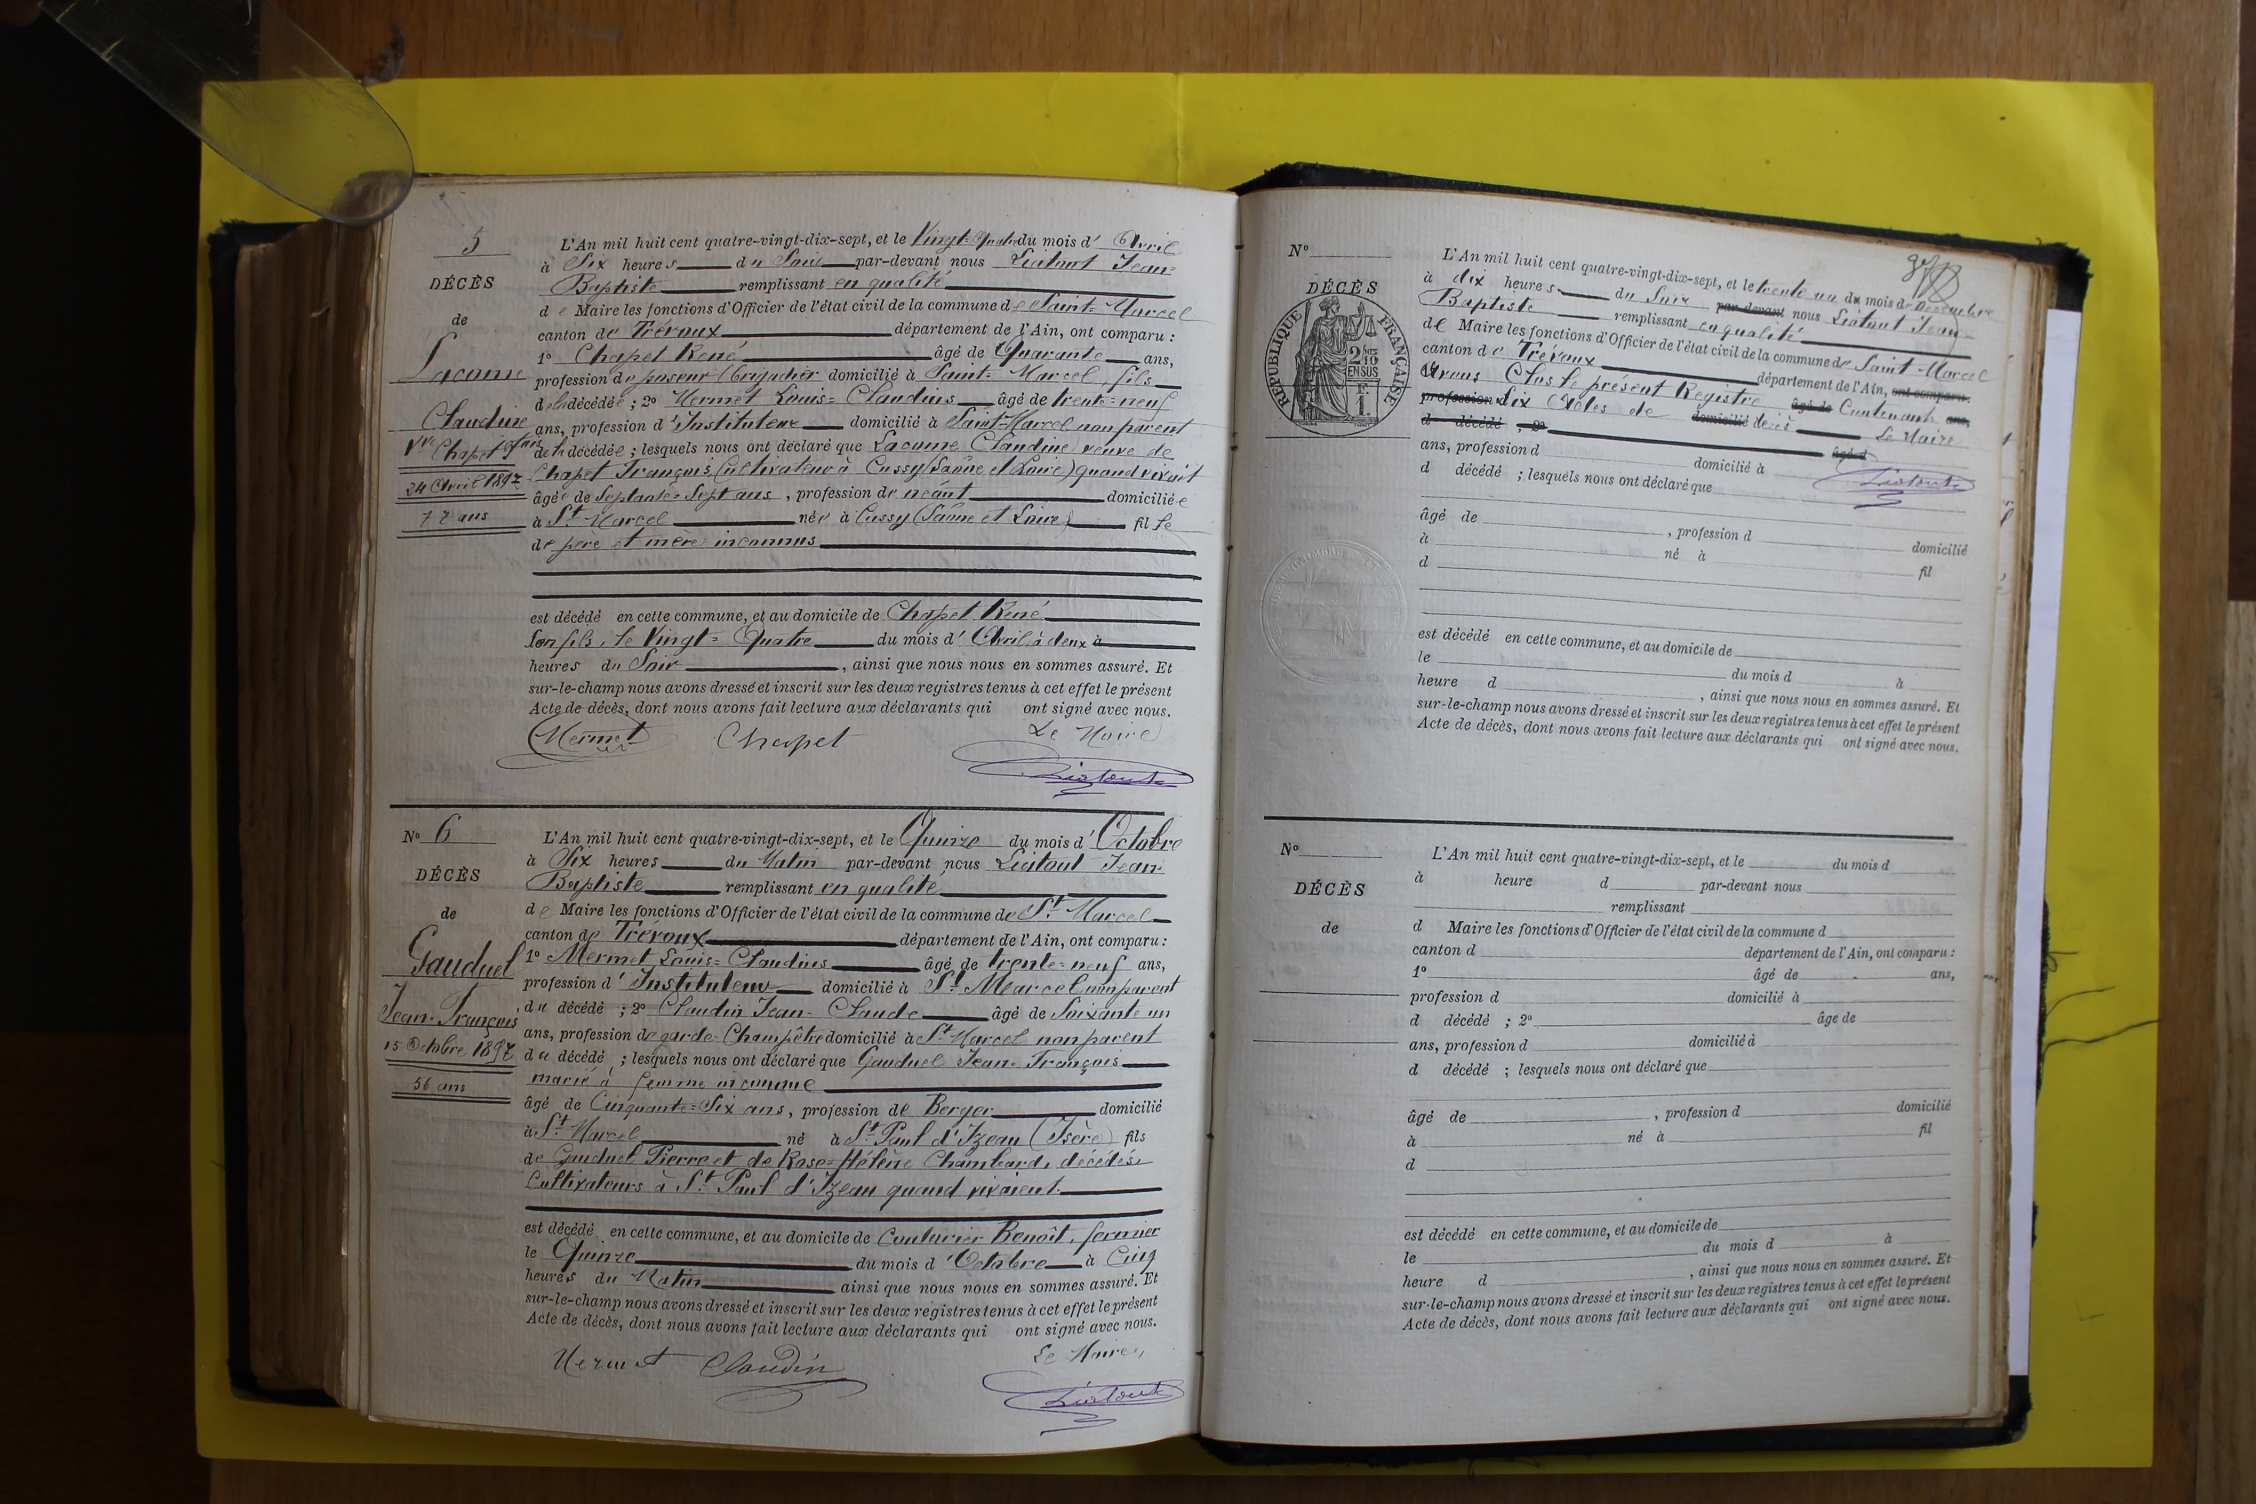 5
DÉCÈS
de
Lacome
Claudine
Vve Chapet Fçois
24 Avril 1897
77 ans
L'An mil huit cent quatre-vingt-dix-sept, et le Vingt-Quatre du mois d' Avril
à Six heures du Soir par-devant nous Liatout Jean-
Baptiste remplissant en qualité
de Maire les fonctions d'Officier de l'état civil de la commune de Saint-Marcel
canton de Trévoux département de l'Ain, ont comparu :
1° Chapet René âgé de Quarante ans,
profession de poseur (brigadier domicilié à Saint-Marcel, fils
de la décédée ; 2° Mermet Louis-Claudius âgé de trente-neuf
ans, profession d'Instituteur domicilié à Saint-Marcel non parent
de la décédée ; lesquels nous ont déclaré que Lacome Claudine veuve de
Chapet François, Cultivateur à Cussy (Saône et Loire) quand vivait
âgée de Septante-Sept ans , profession de néant domiciliée
à St Marcel née à Cussy (Saône et Loire) fille
de père et mère inconnus
est décédé en cette commune, et au domicile de Chapet René
son fils, le Vingt-Quatre du mois d' Avril à deux à
heures du Soir , ainsi que nous nous en sommes assuré. Et
sur-le-champ nous avons dressé et inscrit sur les deux registres tenus à cet effet le présent
Acte de décès, dont nous avons fait lecture aux déclarants qui ont signé avec nous.
Mermet Chapet Le Maire
Liatout
N° 6
DÉCÈS
de
Gauduel
Jean-François
15 Octobre 1897
56 ans
L'An mil huit cent quatre-vingt-dix-sept, et le Quinze du mois d' Octobre
à Six heures du Matin par-devant nous Liatout Jean-
Baptiste remplissant en qualité
de Maire les fonctions d'Officier de l'état civil de la commune de St Marcel
canton de Trévoux département de l'Ain, ont comparu :
1° Mermet Louis-Claudius âgé de trente-neuf ans,
profession d' Instituteur domicilié à St Marcel non parent
du décédé ; 2° Claudin Jean-Claude âgé de Soixante un
ans, profession de garde-Champêtre domicilié à St Marcel non parent
du décédé ; lesquels nous ont déclaré que Gauduel Jean-François
marié à femme inconnue
âgé de Cinquante-Six ans , profession de Berger domicilié
à St Marcel né à St Paul d'Izeau (Isère) fils
de Gauduel Pierre et de Rose-Hélène Chambard, décédés,
Cultivateurs à St Paul d'Izeau quand vivaient
est décédé en cette commune, et au domicile de Couturier Benoît, fermier
le Quinze du mois d' Octobre à Cinq
heures du Matin ainsi que nous nous en sommes assuré. Et
sur-le-champ nous avons dressé et inscrit sur les deux registres tenus à cet effet le présent
Acte de décès, dont nous avons fait lecture aux déclarants qui ont signé avec nous.
Mermet Claudin Le Maire,
Liatout
N°
DÉCÈS
RÉPUBLIQUE FRANÇAISE
2/10 EN SUS
F
1
L'An mil huit cent quatre-vingt-dix-sept, et le trente un du mois de Décembre
à dix heures du Soir par-devant nous Liatout Jean-
Baptiste remplissant en qualité
de Maire les fonctions d'Officier de l'état civil de la commune de Saint-Marcel
canton de Trévoux département de l'Ain, ont comparu.
Avons Clos le présent Registre âgé de Contenant ans,
profession Six Actes de domicilié décès
d décédé ; 2° âgé d Le Maire
ans, profession d domicilié à
d décédé ; lesquels nous ont déclaré que Liatout
âgé de , profession d domicilié
à né à
d fil
est décédé en cette commune, et au domicile de
le du mois d à
heure d , ainsi que nous nous en sommes assuré. Et
sur-le-champ nous avons dressé et inscrit sur les deux registres tenus à cet effet le présent
Acte de décès, dont nous avons fait lecture aux déclarants qui ont signé avec nous.
N°
DÉCÈS
de
L'An mil huit cent quatre-vingt-dix-sept, et le du mois d
à heure d par-devant nous
remplissant
d Maire les fonctions d'Officier de l'état civil de la commune d
canton d département de l'Ain, ont comparu :
1° âgé de ans,
profession d domicilié à
d décédé ; 2° âge de
ans, profession d domicilié à
d décédé ; lesquels nous ont déclaré que
âgé de , profession d domicilié
à né à fil
d
est décédé en cette commune, et au domicile de
le du mois d à
heure d , ainsi que nous nous en sommes assuré. Et
sur-le-champ nous avons dressé et inscrit sur les deux registres tenus à cet effet le présent
Acte de décès, dont nous avons fait lecture aux déclarants qui ont signé avec nous.